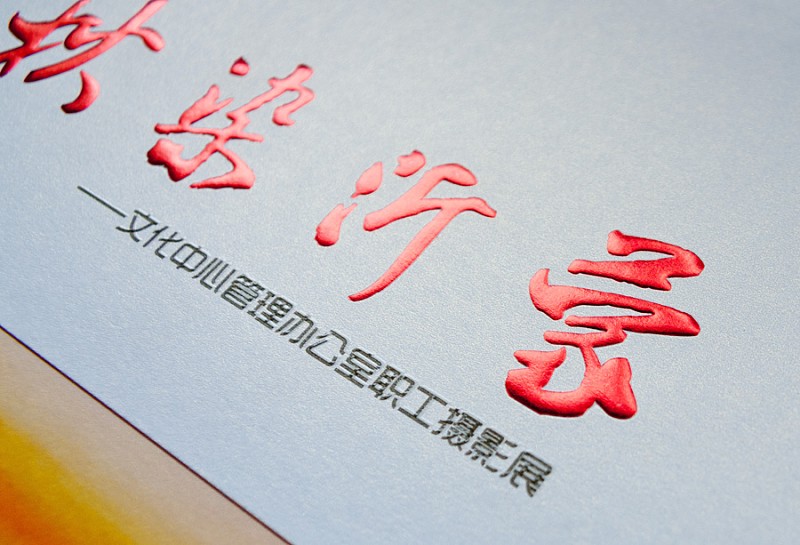 染沂蒙
——文化中心管理办公室职工摄影展